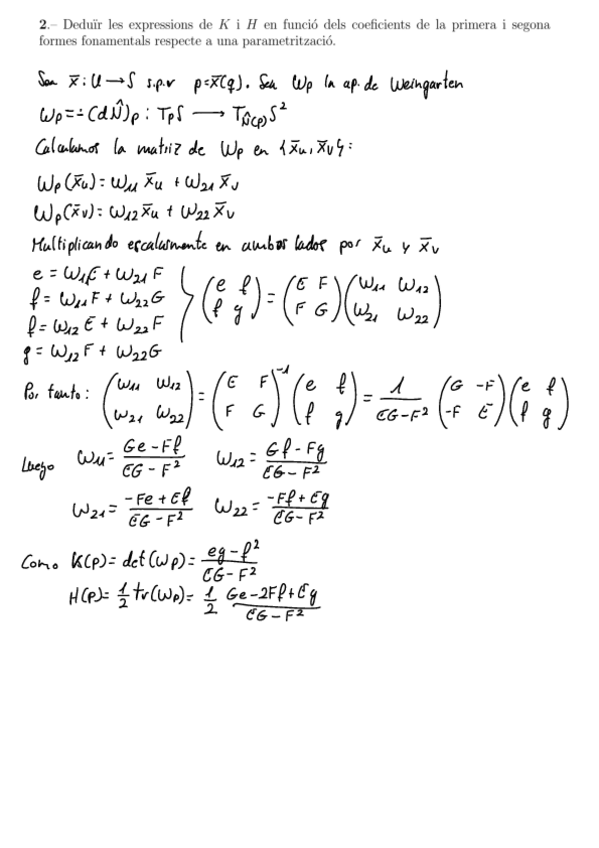 2.– Deduïr les expressions de K i H en funció dels coeficients de la primera i segona
formes fonamentals respecte a una parametrització.
Sea x̄: U → S s.p.r p = x̄(q). Sea Wp la ap. de Weingarten
Wp = -(dN̂)p : TpS → T_N̂(p) S²
Calculamos la matriz de Wp en {x̄u, x̄v}:
Wp(x̄u) = W11 x̄u + W21 x̄v
Wp(x̄v) = W12 x̄u + W22 x̄v
Multiplicando escalarmente en ambos lados por x̄u y x̄v
e = W11 E + W21 F
f = W11 F + W22 G
f = W12 E + W22 F
g = W12 F + W22 G
} (e f / f g) = (E F / F G) (W11 W12 / W21 W22)
Por tanto: (W11 W12 / W21 W22) = (E F / F G)⁻¹ (e f / f g) = 1/(EG-F²) (G -F / -F E) (e f / f g)
Luego W11 = (Ge - Ff)/(EG - F²) W12 = (Gf - Fg)/(EG - F²)
W21 = (-Fe + Ef)/(EG - F²) W22 = (-Ff + Eg)/(EG - F²)
Como K(p) = det(Wp) = (eg - f²)/(EG - F²)
H(p) = 1/2 tr(Wp) = 1/2 (Ge - 2Ff + Eg)/(EG - F²)